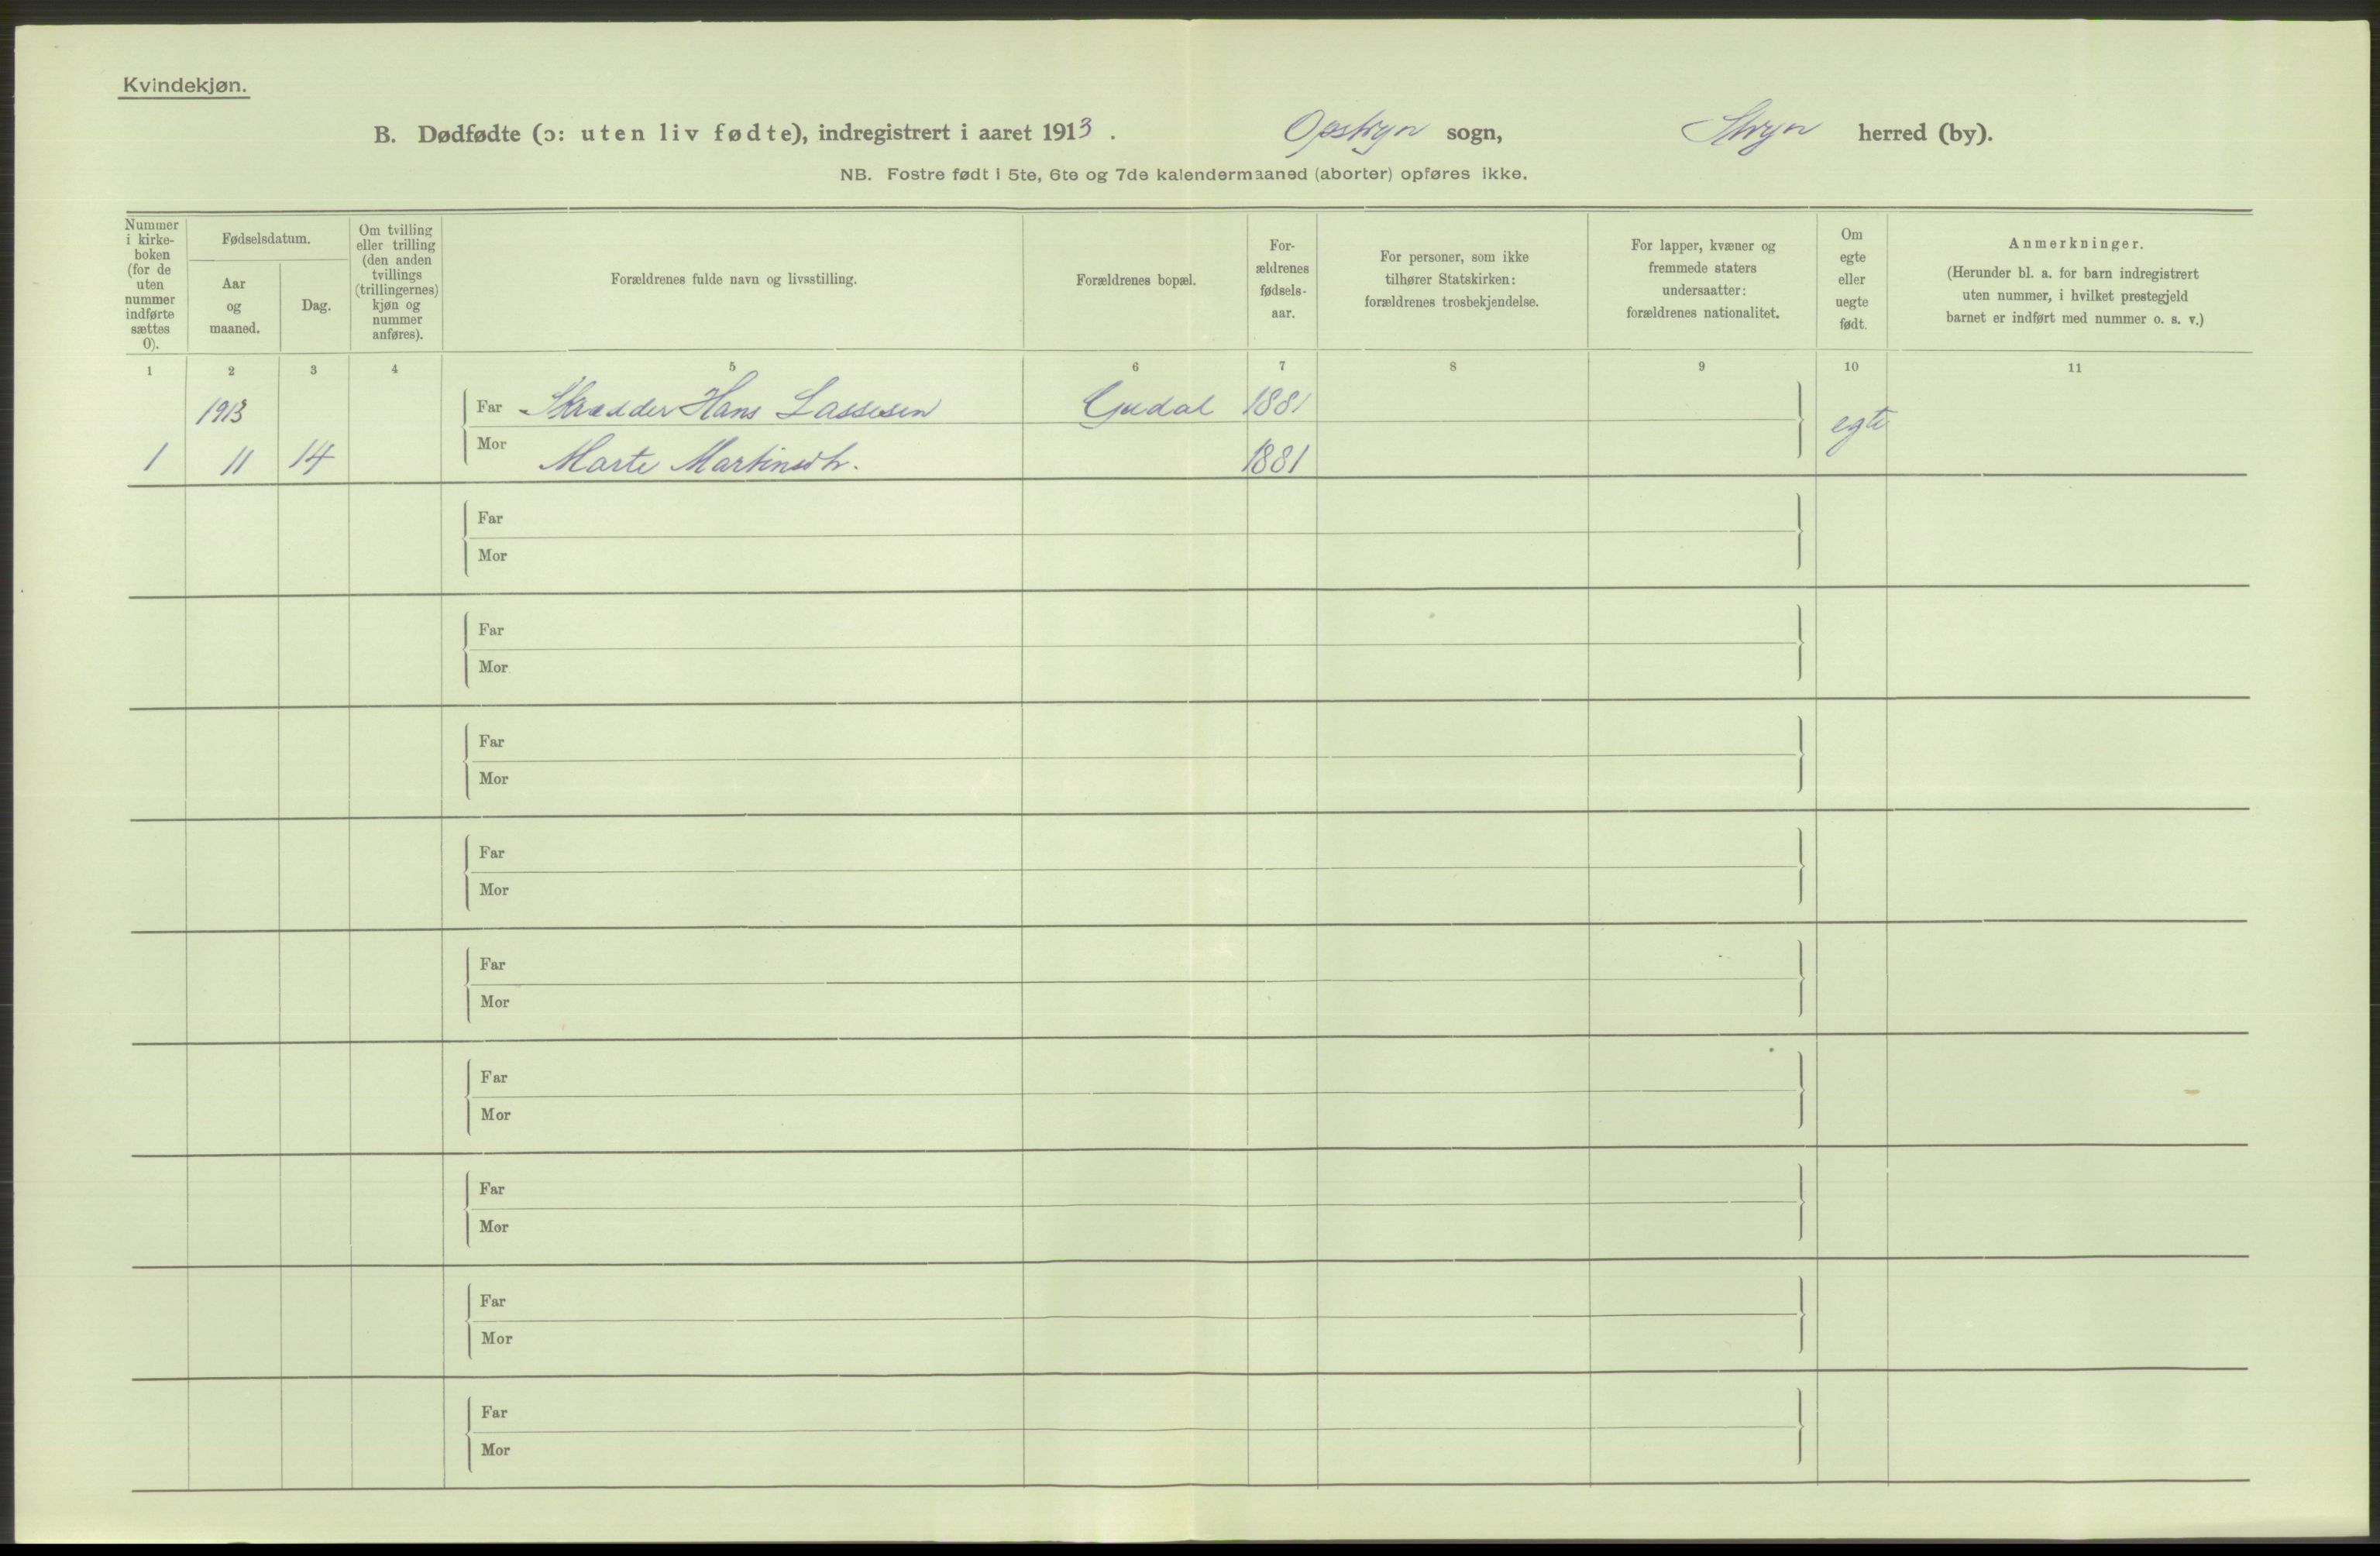 Kvindekjøn.
B. Dødfødte (ɔ: uten liv fødte), indregistrert i aaret 1913. Opstryn sogn, Stryn herred (by).
NB. Fostre født i 5te, 6te og 7de kalendermaaned (aborter) opføres ikke.
Nummer i kirke-boken (for de uten nummer indførte sættes 0).
Fødselsdatum.
Aar og maaned.
Dag.
Om tvilling eller trilling (den anden tvillings (trillingernes) kjøn og nummer anføres).
Forældrenes fulde navn og livsstilling.
Forældrenes bopæl.
For-ældrenes fødsels-aar.
For personer, som ikke tilhører Statskirken: forældrenes trosbekjendelse.
For lapper, kvæner og fremmede staters undersaatter: forældrenes nationalitet.
Om egte eller uegte født.
Anmerkninger.
(Herunder bl. a. for barn indregistrert uten nummer, i hvilket prestegjeld barnet er indført med nummer o. s. v.)
1 2 3 4 5 6 7 8 9 10 11
1913 Far Skrædder Hans Lassesen 1881 egte
1 11 14 Mor Marte Martinsdtr. 1881
Far
Mor
Far
Mor
Far
Mor
Far
Mor
Far
Mor
Far
Mor
Far
Mor
Far
Mor
Far
Mor